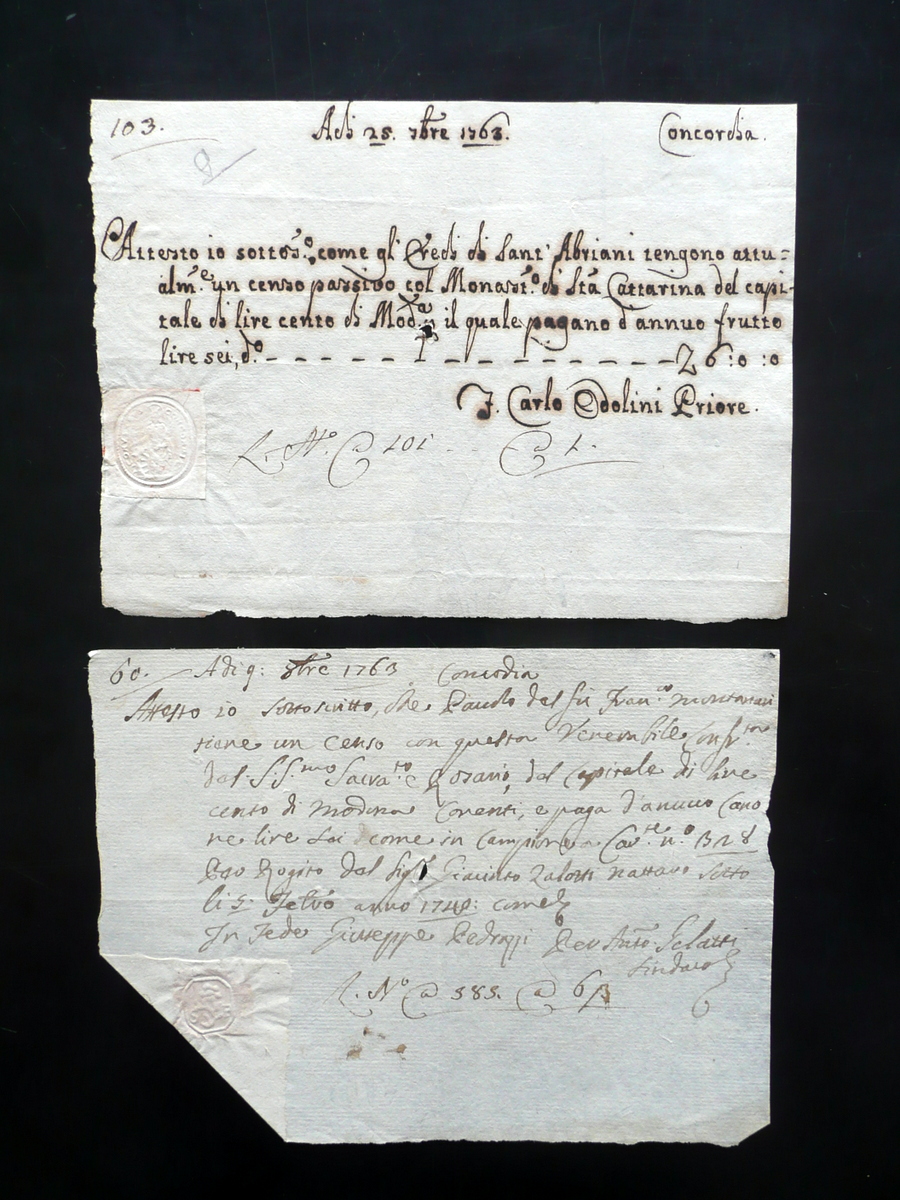 103. Adi 25. 7bre 1763. Concordia.
Attesto io sottos.o come gl'Eredi di Sant'Abriani tengono attu=
alm.e un censo passivo col Monast.o di Sta Cattarina del capi-
tale di lire cento di Mod.a il quale pagano d'annuo frutto
lire sei, d.o - - - - - - - - - - - - 6:0:0
F. Carlo Edolini Priore.
L. N.o @ 101 - - @ 1.
60. Adi 9: 8bre 1763. Concordia
Attesto io sottoscritto, che Paulo del Sig Fran.co Montanari
tiene un censo con questa Venerabile Conf.ta
del S.S.mo Sacra.to e Rosario, del capitale di lire
cento di Modena Corenti, e paga d'annuo Cano
ne lire Sei come in Campione a Car.te n.o 328
Per Rogito del Sig.r Giacinto Zalotti nattaro sotto
li 5: Febro anno 1748: come
In Fede Giuseppe Pedrazzi Per Anto.
Sindaco
L. N.o @ 585. @ 6